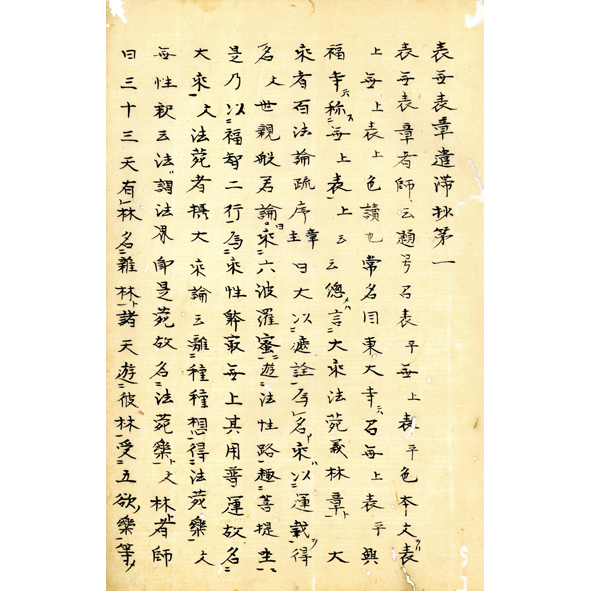 表毎表章遣滞抄第一
表毎表章者師云題号名表平毎上表平色本文表
上毎上表上色讀也常名目東大寺名毎上表平興
福寺称毎上表上云云總言大乗法苑義林章大
乗者百法論疏序章主曰大以遮詮為名乗以運載得
名文世親般若論乗曰六波羅蜜遊法性路趣菩提座
是乃以福智二行為乗性解最毎上其用普運故名
大乗文法苑者摂大乗論云離種種想得法苑樂文
毎性釈云法謂法界即是苑故名法苑樂文林者師
曰三十三天有林名雜林諸天遊彼林受五欲樂等